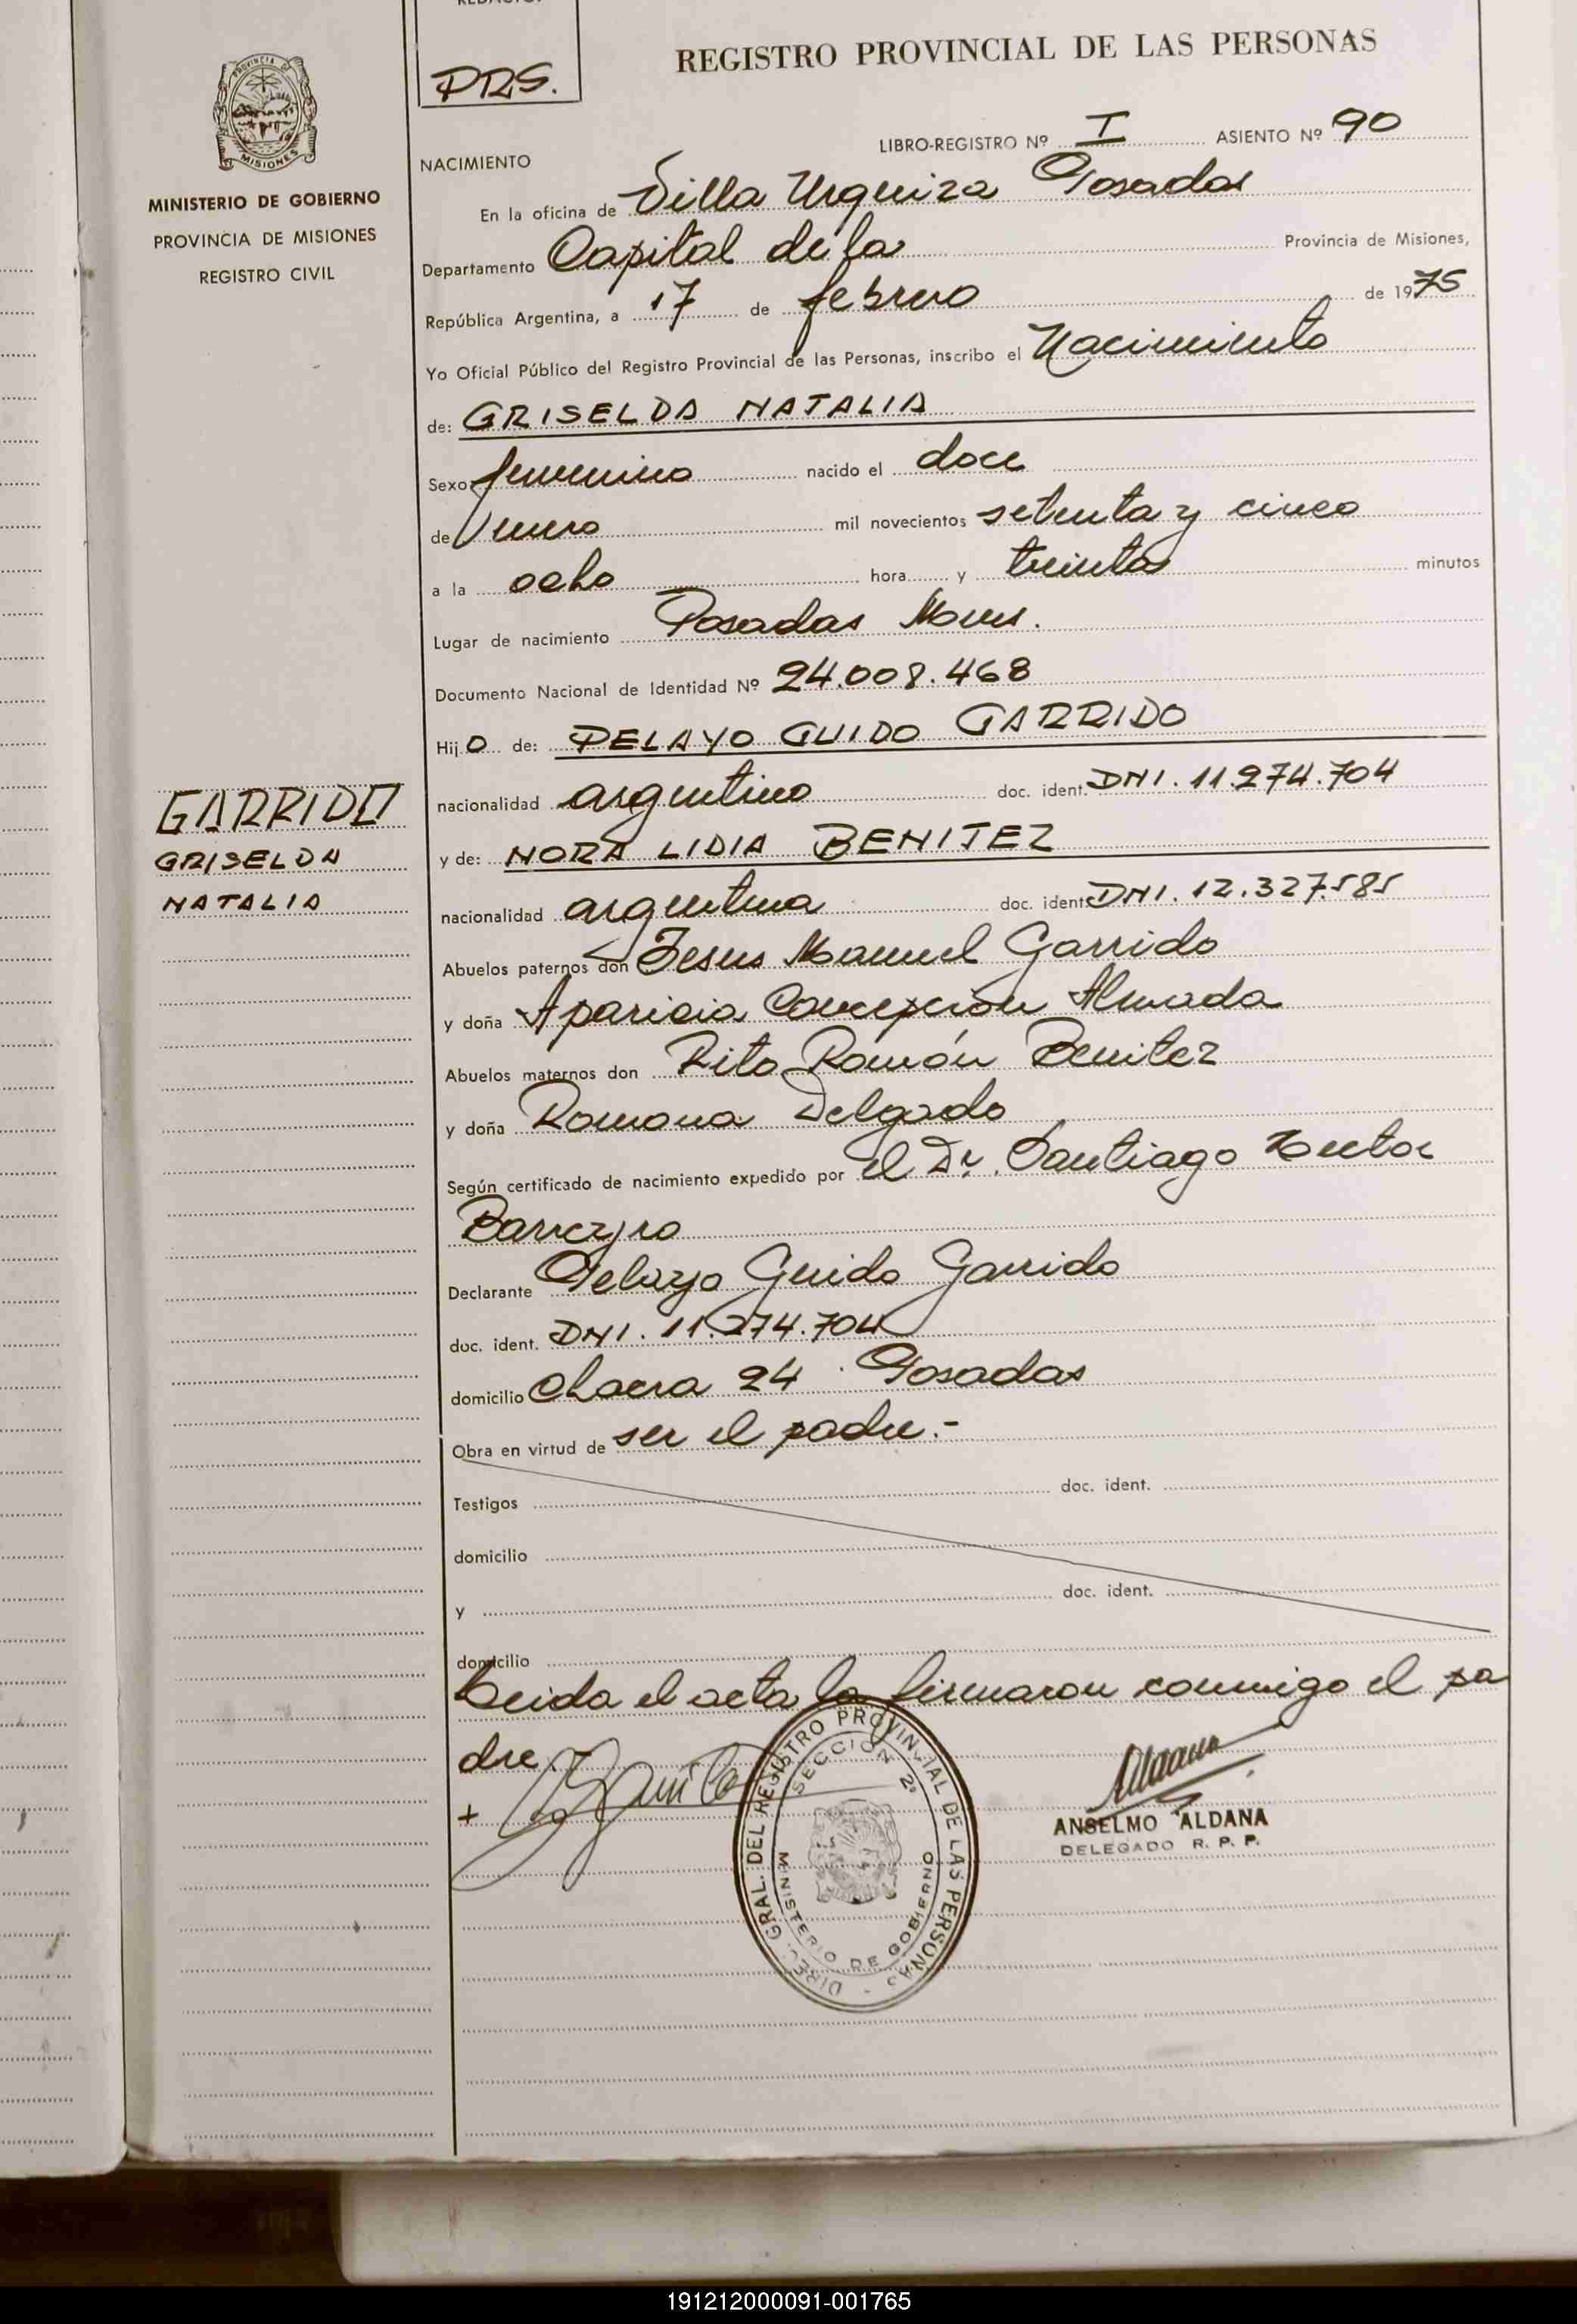 REDACTO:
PRS.
REGISTRO PROVINCIAL DE LAS PERSONAS
PROVINCIA DE
MISIONES
MINISTERIO DE GOBIERNO
PROVINCIA DE MISIONES
REGISTRO CIVIL
LIBRO-REGISTRO Nº I ASIENTO Nº 90
NACIMIENTO
En la oficina de Villa Urquiza Posadas
Departamento Capital de la Provincia de Misiones,
República Argentina, a 17 de febrero de 1975
Yo Oficial Público del Registro Provincial de las Personas, inscribo el Nacimiento
de: GRISELDA NATALIA
Sexo femenino nacido el doce
de enero mil novecientos setenta y cinco
a la ocho hora y treinta minutos
Lugar de nacimiento Posadas
Documento Nacional de Identidad Nº 24.008.468
Hijo de: PELAYO GUIDO GARRIDO
nacionalidad argentino doc. ident. DNI. 11.274.704
y de: NORA LIDIA BENITEZ
nacionalidad argentina doc. ident. DNI. 12.327.585
Abuelos paternos don Jesus Manuel Garrido
y doña Aparicia Concepción Almada
Abuelos maternos don Rito Ramón Benitez
y doña Ramona Delgado
Según certificado de nacimiento expedido por el Dr. Santiago Hector
Barreyro
Declarante Pelayo Guido Garrido
doc. ident. DNI. 11.274.704
domicilio Chacra 24 Posadas
Obra en virtud de ser el padre.-
Testigos doc. ident.
domicilio
y doc. ident.
domicilio
Leida el acta la firmaron conmigo el pa
dre.
GARRIDO
GRISELDA
NATALIA
DIREC. GRAL. DEL REGISTRO PROVINCIAL DE LAS PERSONAS
SECCION 2ª
MINISTERIO DE GOBIERNO
Aldana
ANSELMO ALDANA
DELEGADO R. P. P.
191212000091-001765